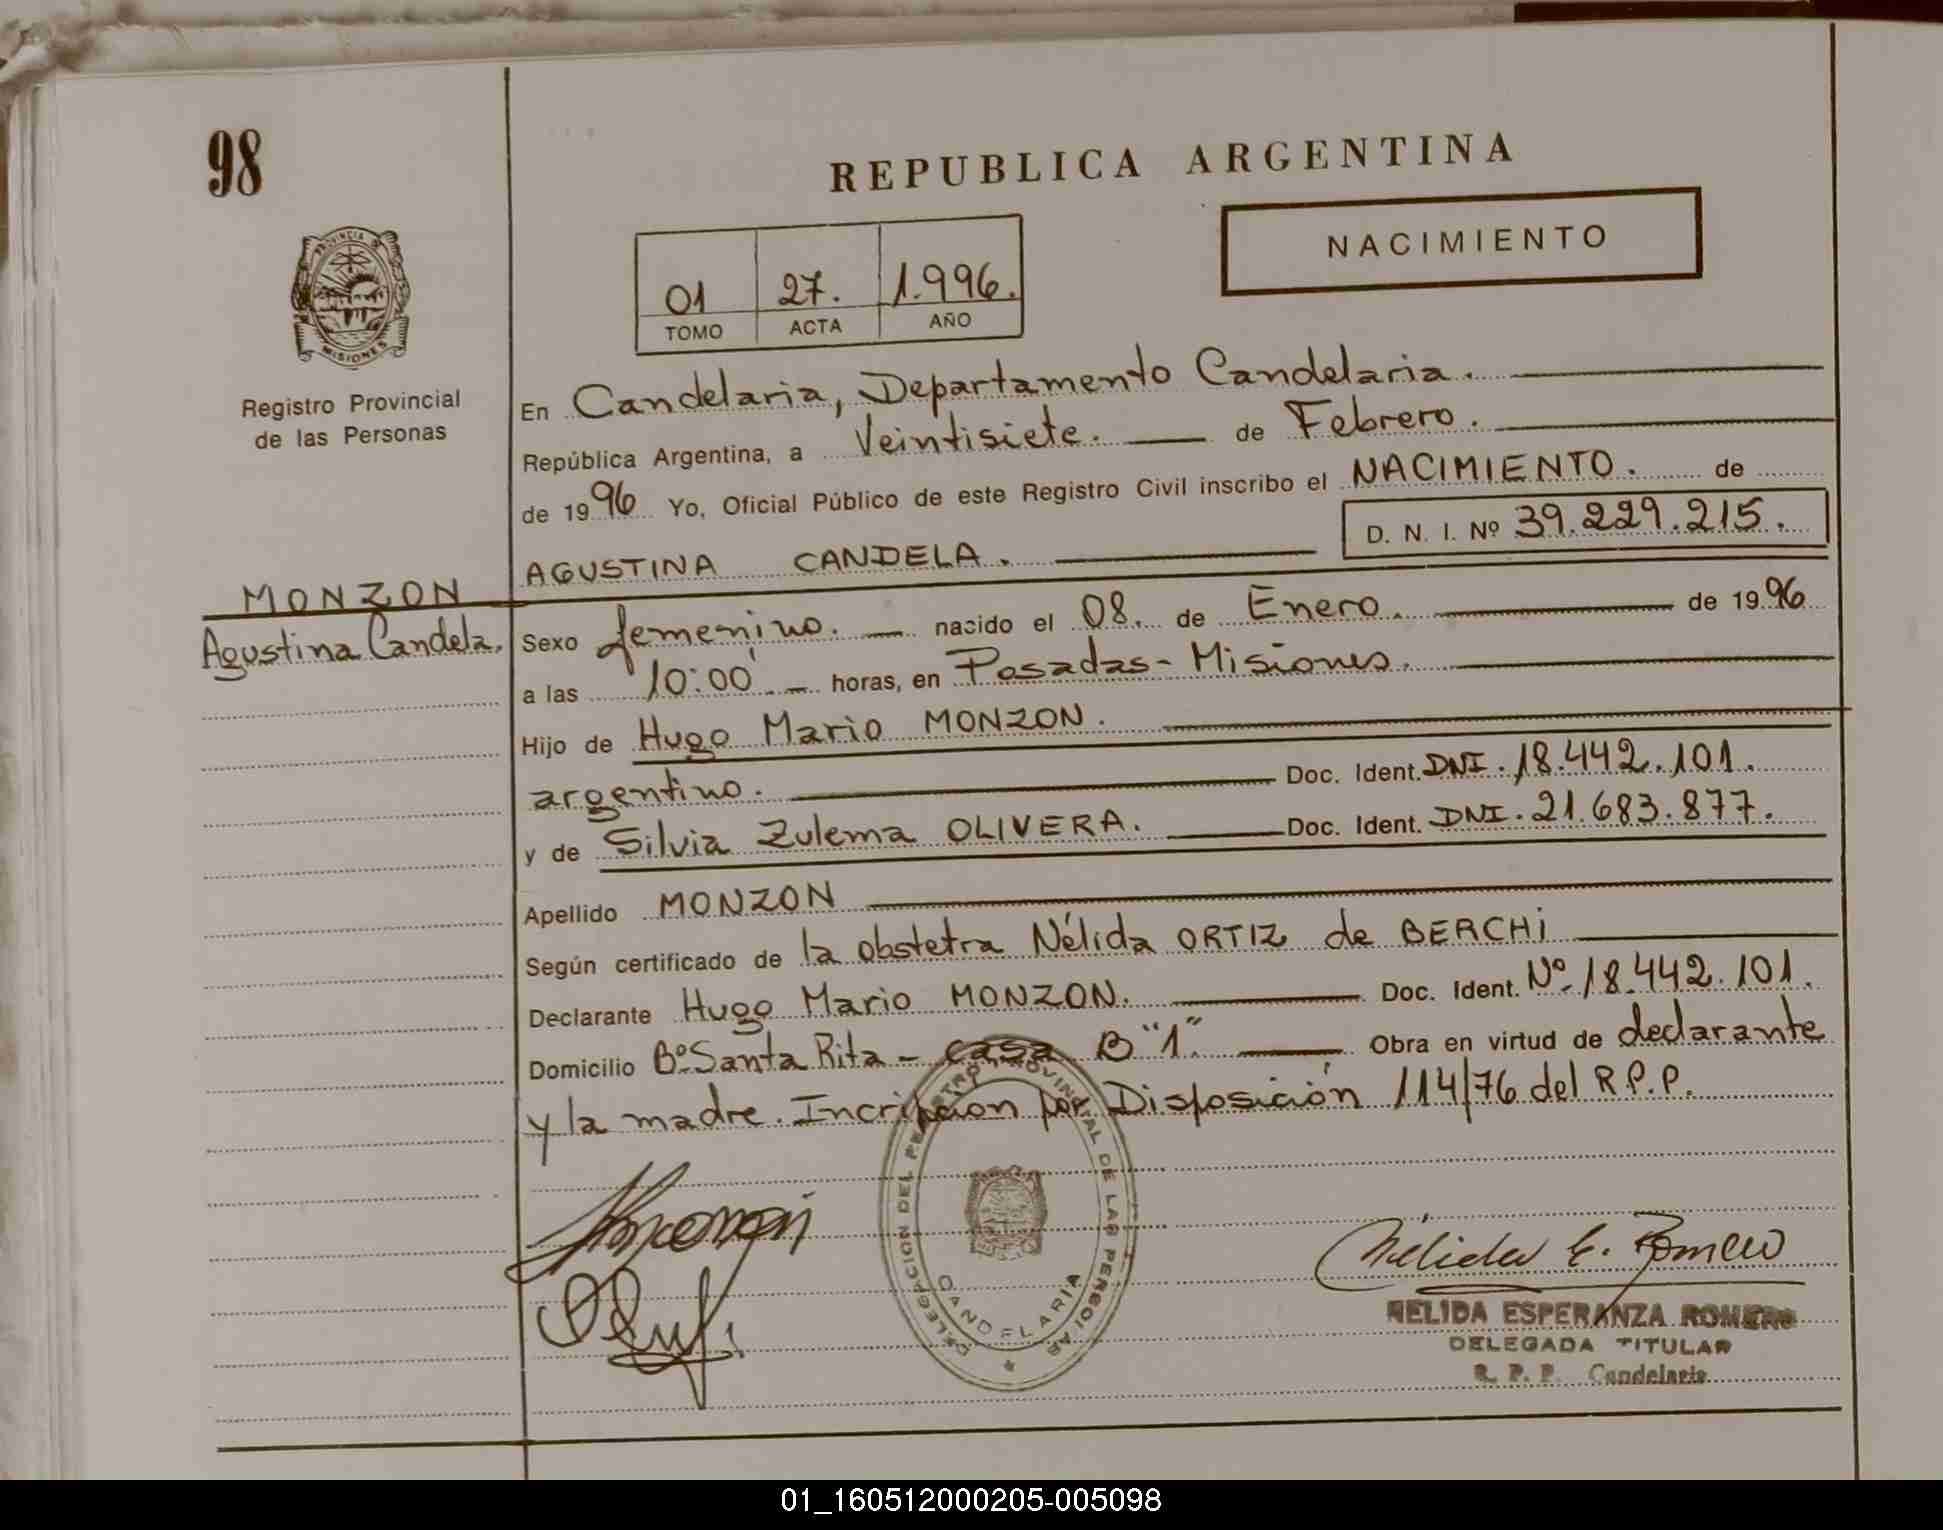 98
REPUBLICA ARGENTINA
NACIMIENTO
01 27. 1.996.
TOMO ACTA AÑO
PROVINCIA DE
MISIONES
Registro Provincial
de las Personas
En Candelaria, Departamento Candelaria.
República Argentina, a Veintisiete. de Febrero.
de 1996 Yo, Oficial Público de este Registro Civil inscribo el NACIMIENTO. de
AGUSTINA CANDELA. D. N. I. Nº 39.229.215.
MONZON
Agustina Candela.
Sexo femenino. nacido el 08. de Enero. de 1996
a las 10:00' horas, en Posadas - Misiones.
Hijo de Hugo Mario MONZON.
argentino. Doc. Ident. DNI. 18.442.101.
y de Silvia Zulema OLIVERA. Doc. Ident. DNI. 21.683.877.
Apellido MONZON
Según certificado de la obstetra Nélida ORTIZ de BERCHI
Declarante Hugo Mario MONZON. Doc. Ident. Nº 18.442.101.
Domicilio Bº Santa Rita - casa B "1" Obra en virtud de declarante
y la madre. Incripcion por Disposición 114/76 del R.P.P.
DELEGACION DEL REGISTRO PROVINCIAL DE LAS PERSONAS
CANDELARIA
Nélida E. Romero
NELIDA ESPERANZA ROMERO
DELEGADA TITULAR
R. P. P. Candelaria
01_160512000205-005098